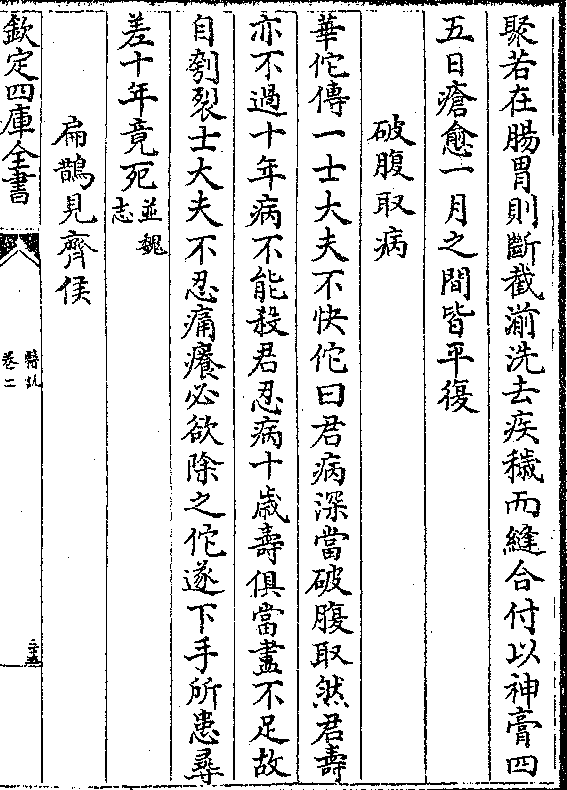 聚若在腸胃則斷截湔洗去疾穢而縫合付以神膏四
五日瘡愈一月之間皆平復
破腹取病
華佗傳一士大夫不快佗曰君病深當破腹取然君壽
亦不過十年病不能殺君忍病十歳壽俱當盡不足故
自刳裂士大夫不忍痛癢必欲除之佗遂下手所患尋
差十年竟死並魏志
扁鵲見齊侯
欽定四庫全書
醫説
卷二
二十五